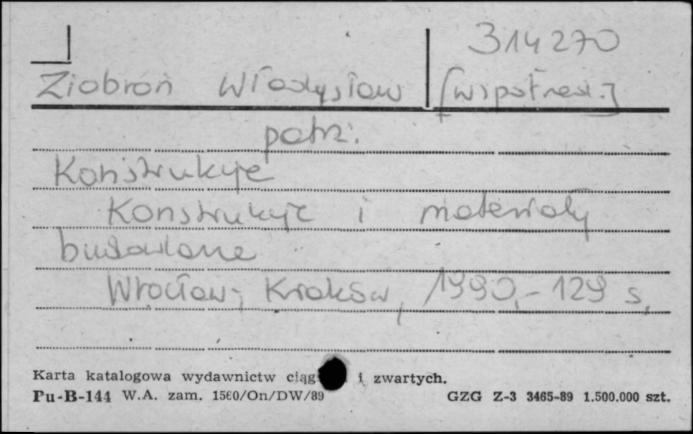 314270
Ziobroń Władysław [współred.]
patrz:
Konstrukcje
Konstrukcje i materiały
budowlane
Wrocław; Kraków, 1990.- 129 s.
Karta katalogowa wydawnictw i zwartych.
Pu-B-144 W.A. zam. 1560/On/DW/89 GZG Z-3 3465-89 1.500.000 szt.